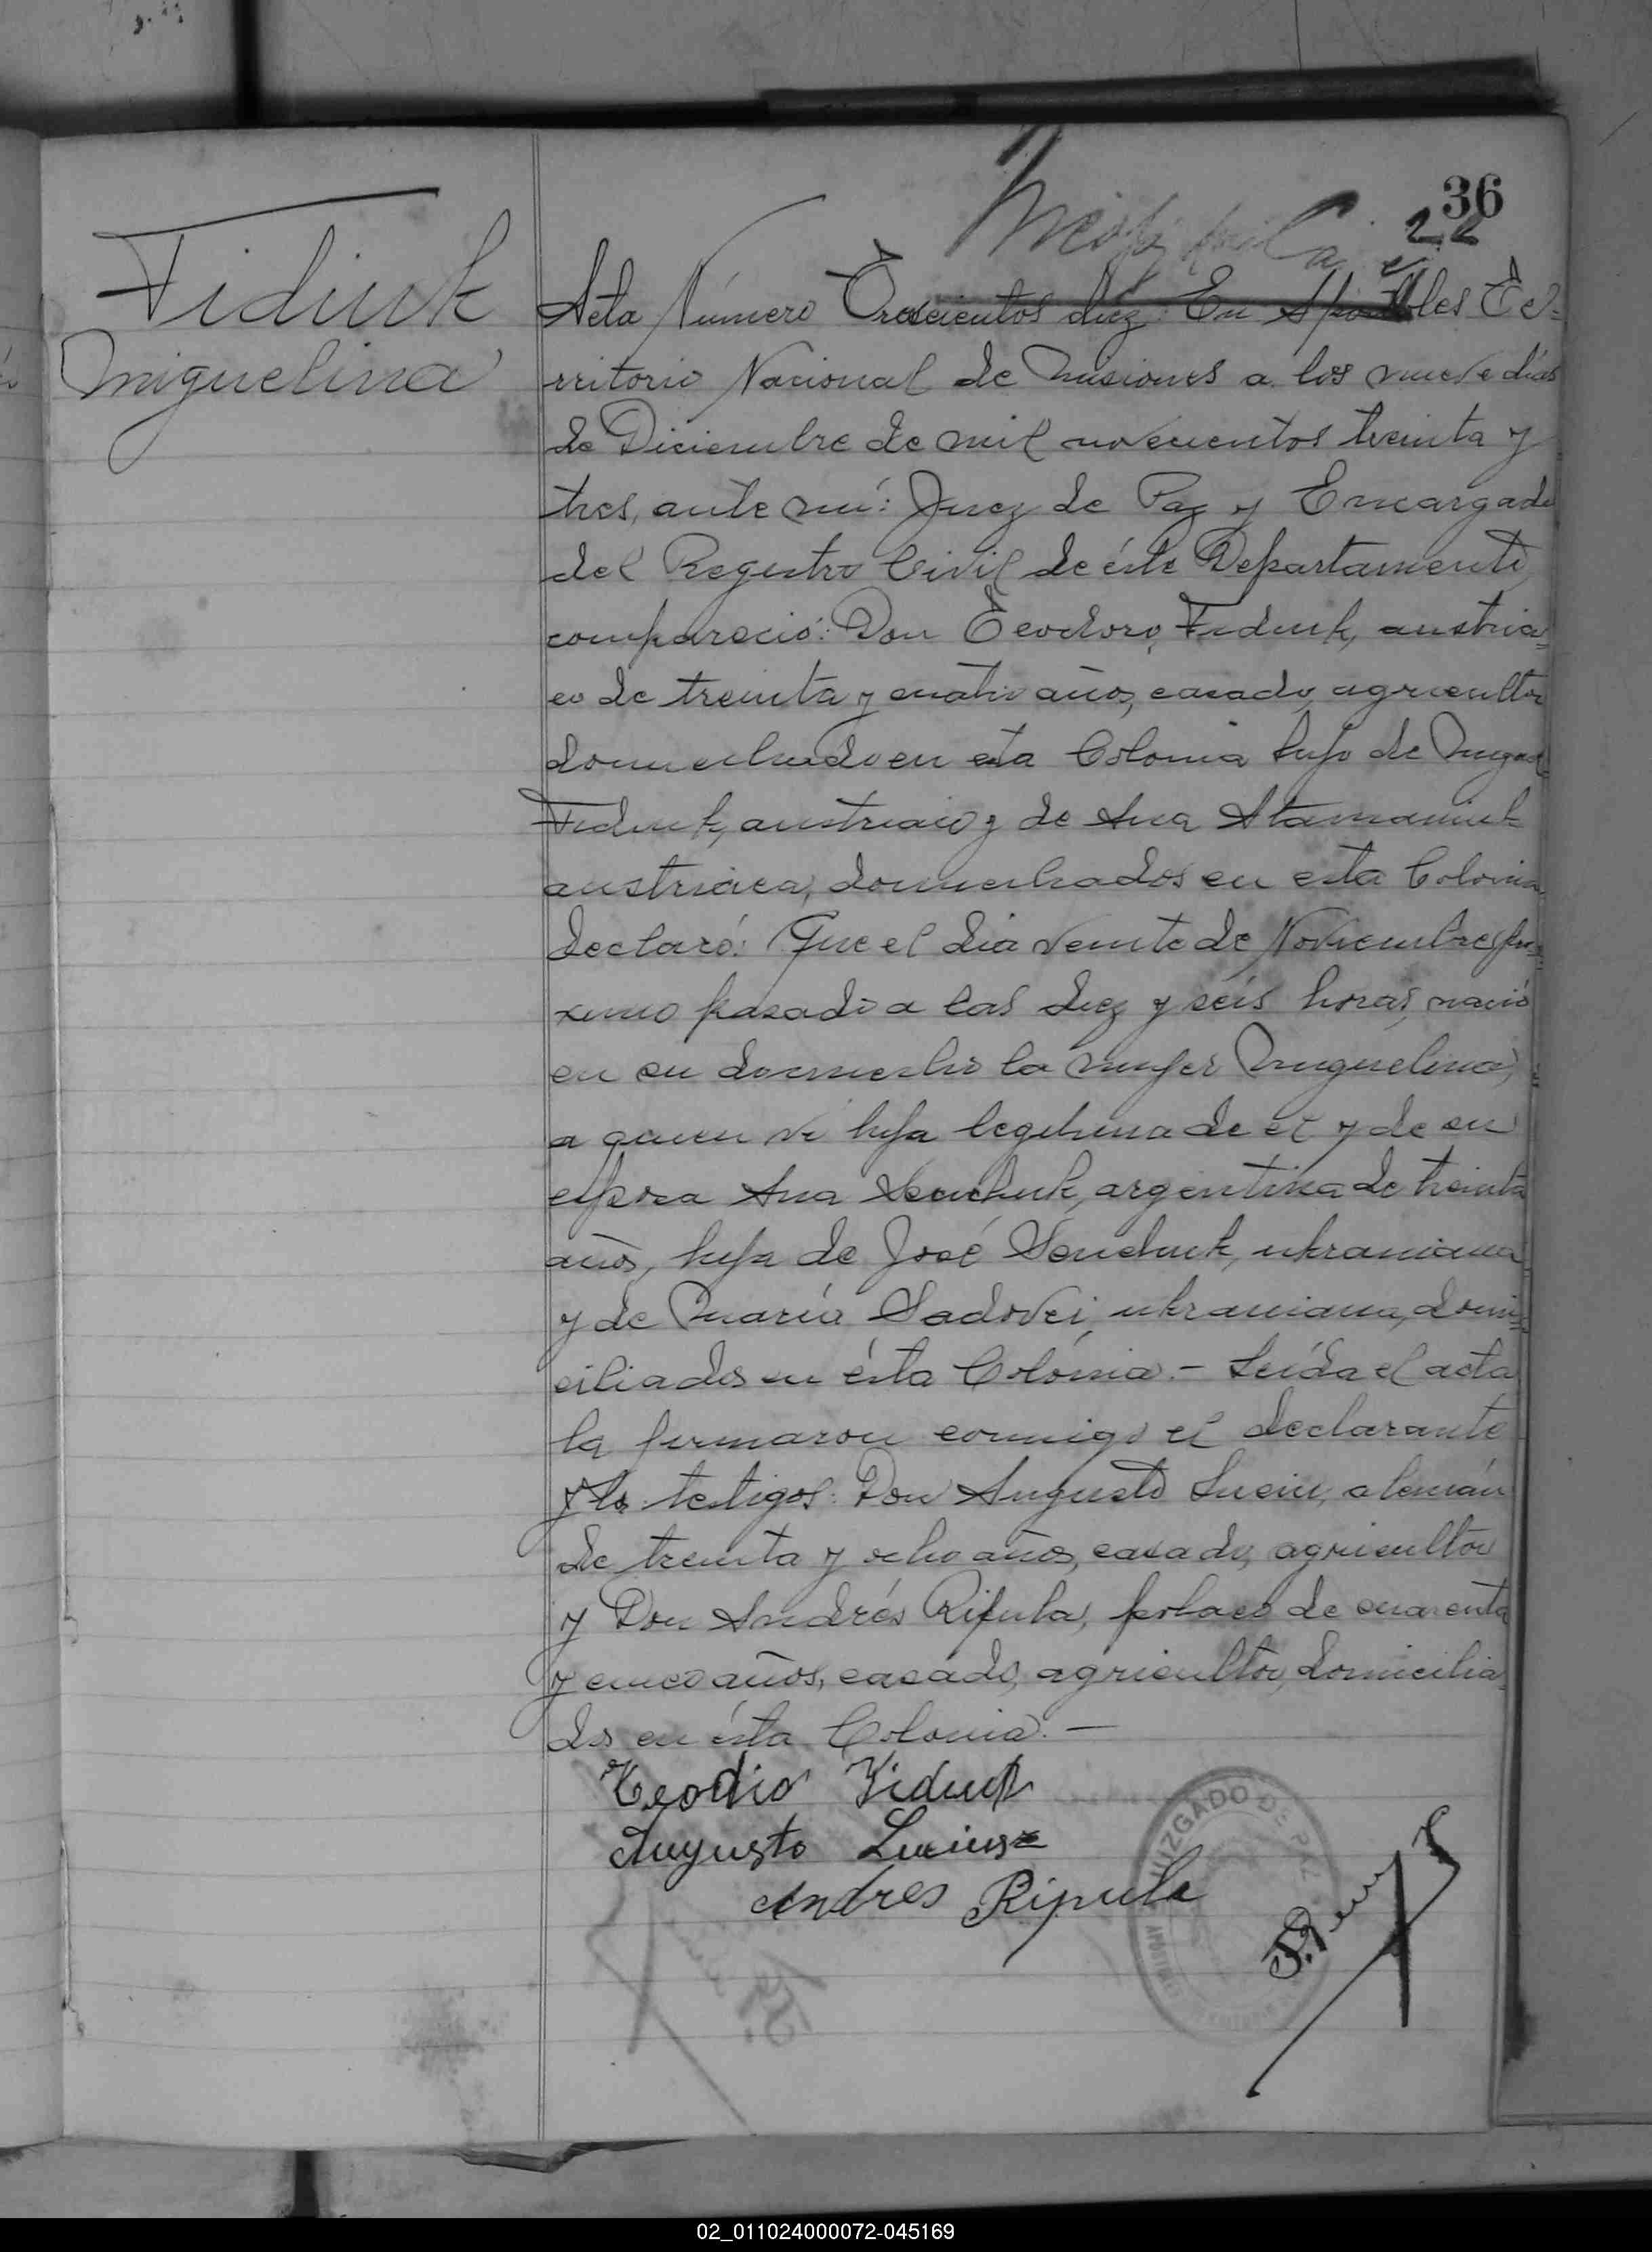 36
22
Fiduk
Miguelina
Acta Número Trescientos diez. En Apóstoles Te-
rritorio Nacional de Misiones a los nueve días
de Diciembre de mil novecientos treinta y
tres, ante mí: Juez de Paz y Encargado
del Registro Civil de éste Departamento,
compareció: Don Teodoro Fiduk, austria=
co de treinta y cuatro años, casado, agricultor
domiciliado en esta Colonia hijo de Miguel
Fiduk, austriaco y de Ana Atamaniuk
austriaca, domiciliados en esta Colonia
declaró: Que el día veinte de Noviembre pró=
ximo pasado a las diez y séis horas, nació
en su domicilio la mujer Miguelina,
a quien vi hija legitima de él y de su
esposa Ana Senchuk, argentina de treinta
años, hija de José Senchuk, ukraniana
y de María Sadovei, ukraniana, domi=
ciliados en ésta Colónia.- Leída el acta
la firmaron conmigo el declarante
y los testigos: Don Augusto Luciu, alemán
de treinta y ocho años, casado, agricultor
y Don Andrés Ripula, polaco de cuarenta
y cinco años, casado, agricultor, domicilia=
dos en ésta Colonia.-
Teodio Fiduk
Augusto Lucius
Andres Ripula
JUZGADO DE PAZ
02_011024000072-045169